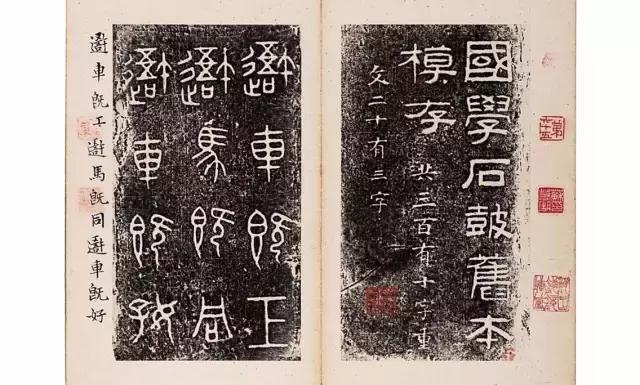 國學石鼓舊本
模存 共三百有十字重
文二十有三字
車既工
馬既同
車既好
車既工 馬既同 車既好